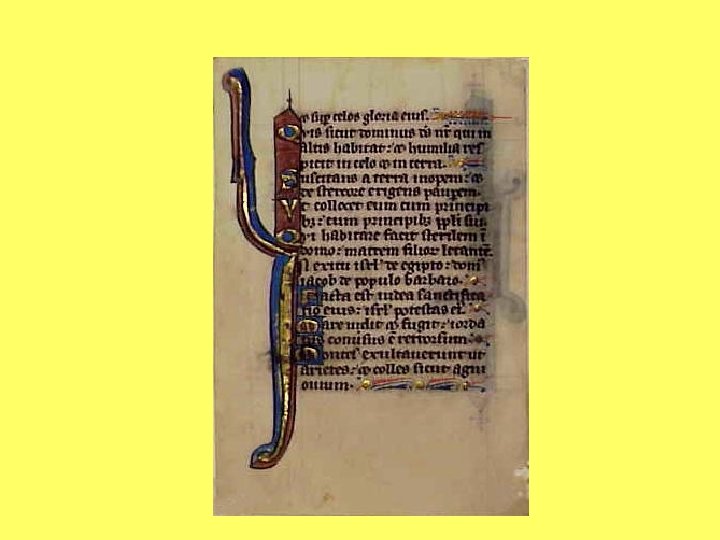 ⁊ sup celos gloria eius.
Quis sicut dominus ds nr qui in
altis habitat: ⁊ humilia res
picit in celo ⁊ in terra.
Suscitans a terra inopem: ⁊
de stercore erigens paupem.
Vt collocet eum cum principi
bz: cum principibz ppli sui.
Qui habitare facit sterilem ī
domo: matrem filior letantē.
In exitu isrl de egipto: dom
iacob de populo barbaro.
Facta est iudea sanctifica
tio eius: isrl potestas ei.
Mare uidit ⁊ fugit: iorda
nis conusus ē retrorsum.
Montes exultauerunt ut
arietes: ⁊ colles sicut agni
ouium.